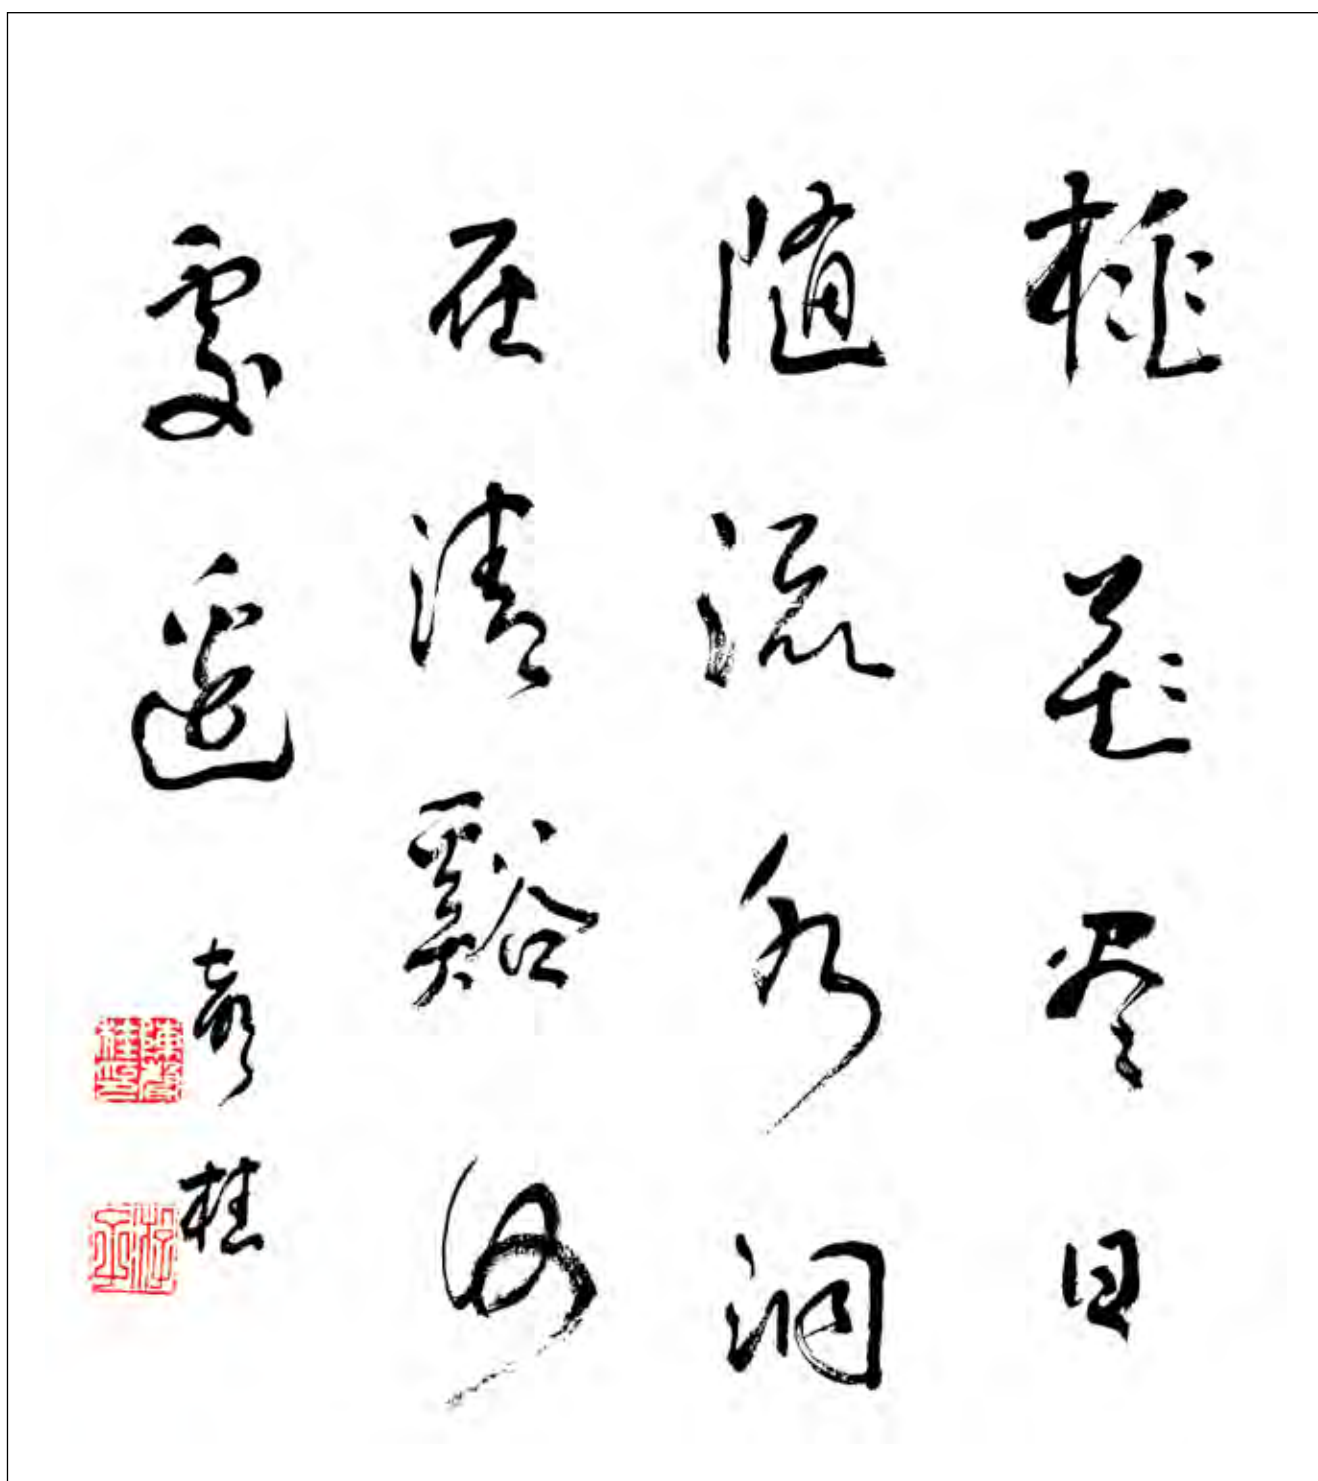 桃花尽日
随流水洞
在清谿何
處邊
桂